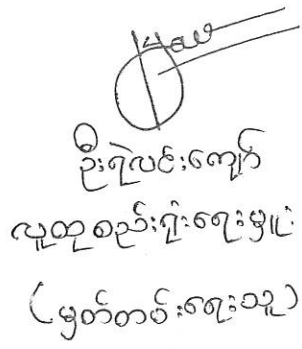 ဦးရဲလင်းကျော်
လူထုစည်းရုံးရေးမှူး
(မှတ်တမ်းရေးသူ)